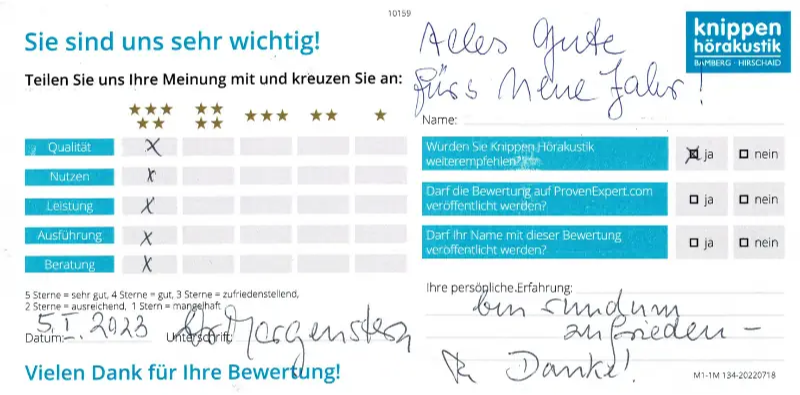 10159
Sie sind uns sehr wichtig!
Teilen Sie uns Ihre Meinung mit und kreuzen Sie an:
★★★★★ ★★★★ ★★★ ★★ ★
Qualität X
Nutzen X
Leistung X
Ausführung X
Beratung X
5 Sterne = sehr gut, 4 Sterne = gut, 3 Sterne = zufriedenstellend,
2 Sterne = ausreichend, 1 Stern = mangelhaft
Datum: 5.I.2023 Unterschrift: Morgenstern
Vielen Dank für Ihre Bewertung!
Alles Gute
fürs Neue Jahr!
knippen
hörakustik
BAMBERG · HIRSCHAID
Name:
Würden Sie Knippen Hörakustik
weiterempfehlen? ☒ ja ☐ nein
Darf die Bewertung auf ProvenExpert.com
veröffentlicht werden? ☐ ja ☐ nein
Darf Ihr Name mit dieser Bewertung
veröffentlicht werden? ☐ ja ☐ nein
Ihre persönliche Erfahrung:
bin rundum
zufrieden –
Danke!
M1-1M 134-20220718